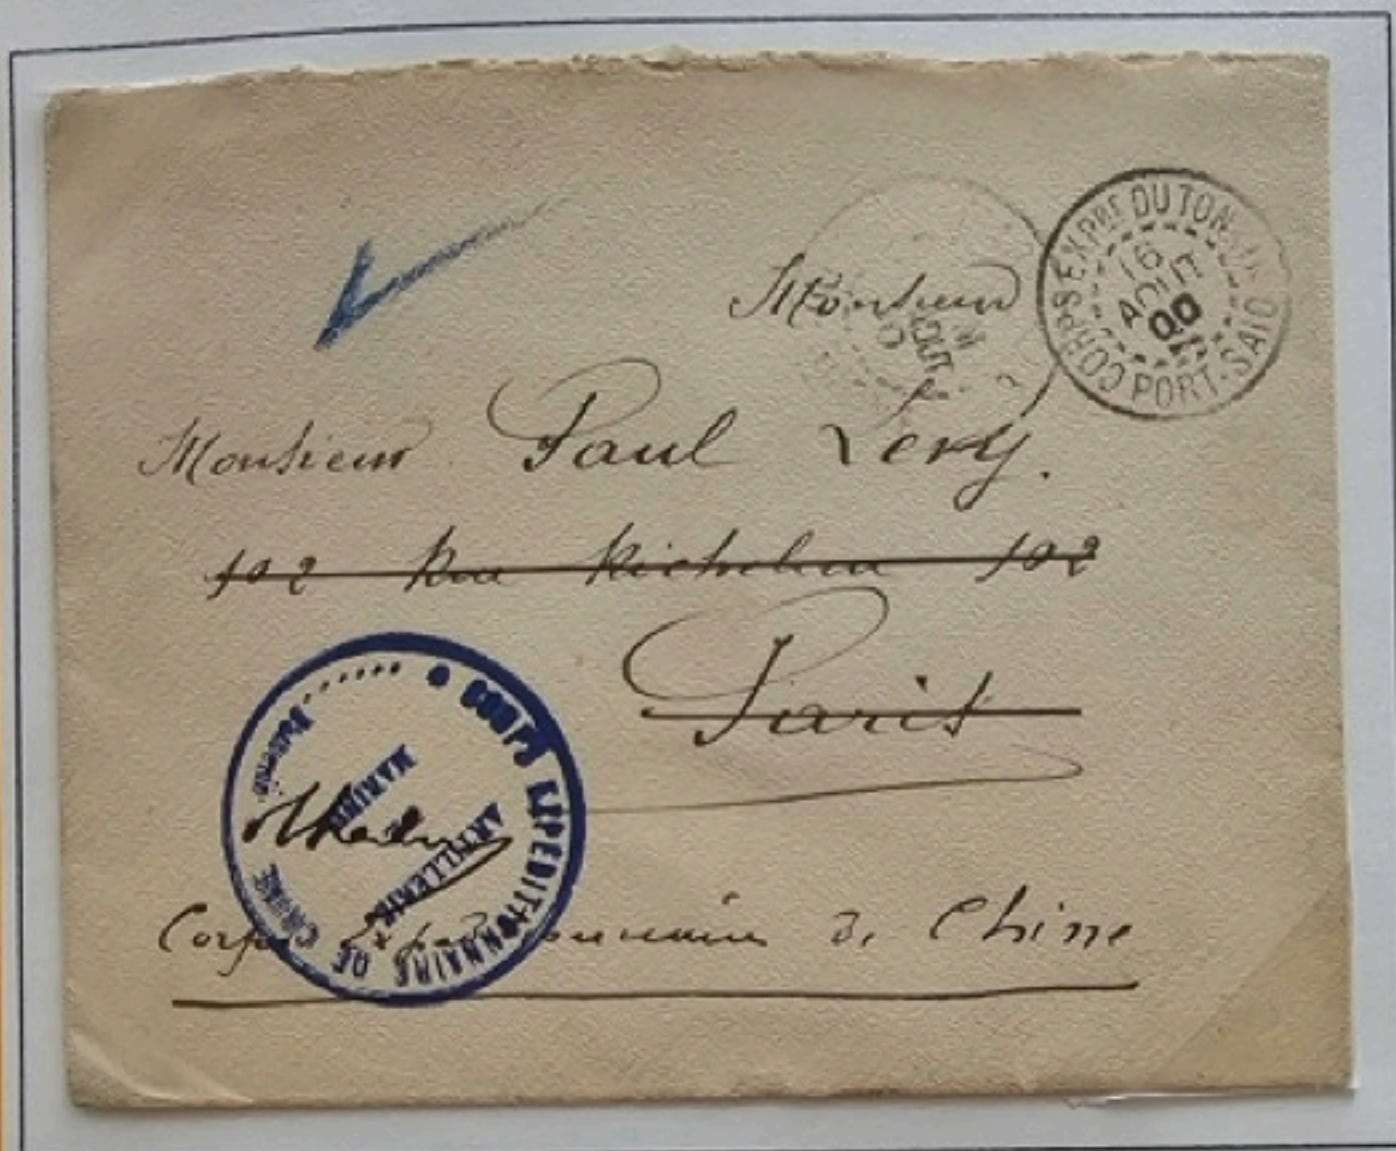 CORPS EXP.RE DU TONKIN
16
AOUT
00
PORT-SAID
AOUT
Monsieur
Monsieur Paul Levy.
102 Rue Richelieu 102
Paris
CORPS EXPEDITIONNAIRE DE CHINE
Batterie
ARTILLERIE
MARINE
Corps Expéditionnaire de Chine